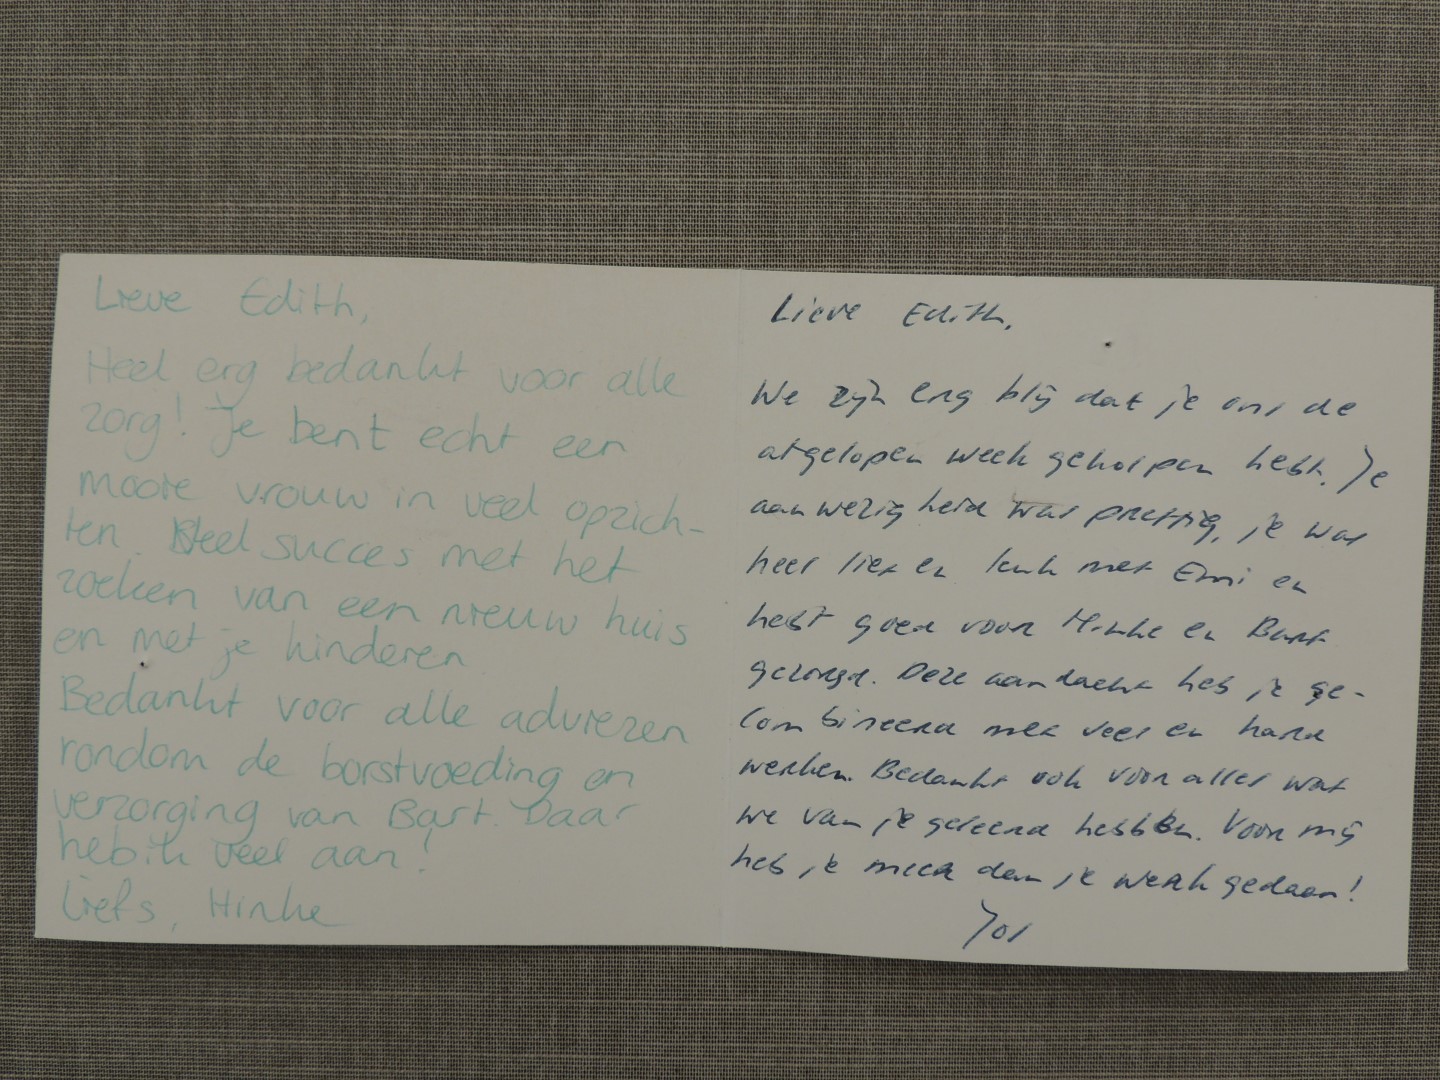 Lieve Edith,
Heel erg bedankt voor alle
zorg! Je bent echt een
mooie vrouw in veel opzich-
ten. Heel succes met het
zoeken van een nieuw huis
en met je kinderen
Bedankt voor alle adviezen
rondom de borstvoeding en
verzorging van Bart. Daar
heb ik veel aan!
Liefs, Hinke
Lieve Edith,
We zijn erg blij dat je ons de
afgelopen week geholpen hebt. Je
aanwezigheid was prettig, je was
heel lief en leuk met Emi en
hebt goed voor Hinke en Bart
gezorgd. Deze aandacht heb je ge-
combineerd met veel en hard
werken. Bedankt ook voor alles wat
we van je geleerd hebben. Voor mij
heb je meer dan je werk gedaan!
Jos